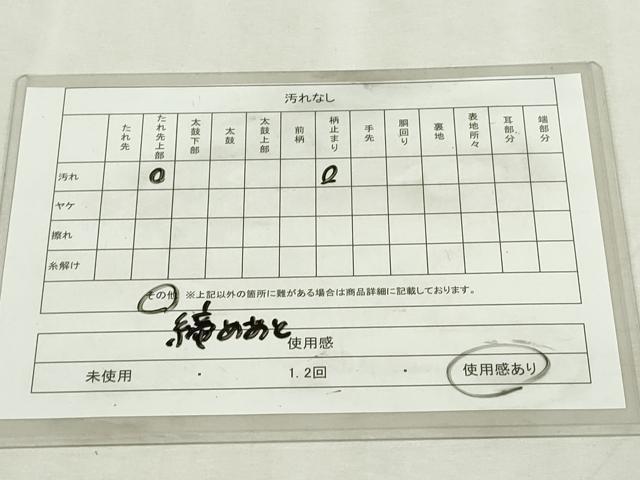 汚れなし
たれ先 たれ先上部 太鼓下部 太鼓 太鼓上部 前柄 柄止まり 手先 胴回り 裏地 表地所々 耳部分 端部分
汚れ O O
ヤケ
擦れ
糸解け
その他 ※上記以外の箇所に難がある場合は商品詳細に記載しております。
締めあと
使用感
未使用 ・ 1.2回 ・ 使用感あり